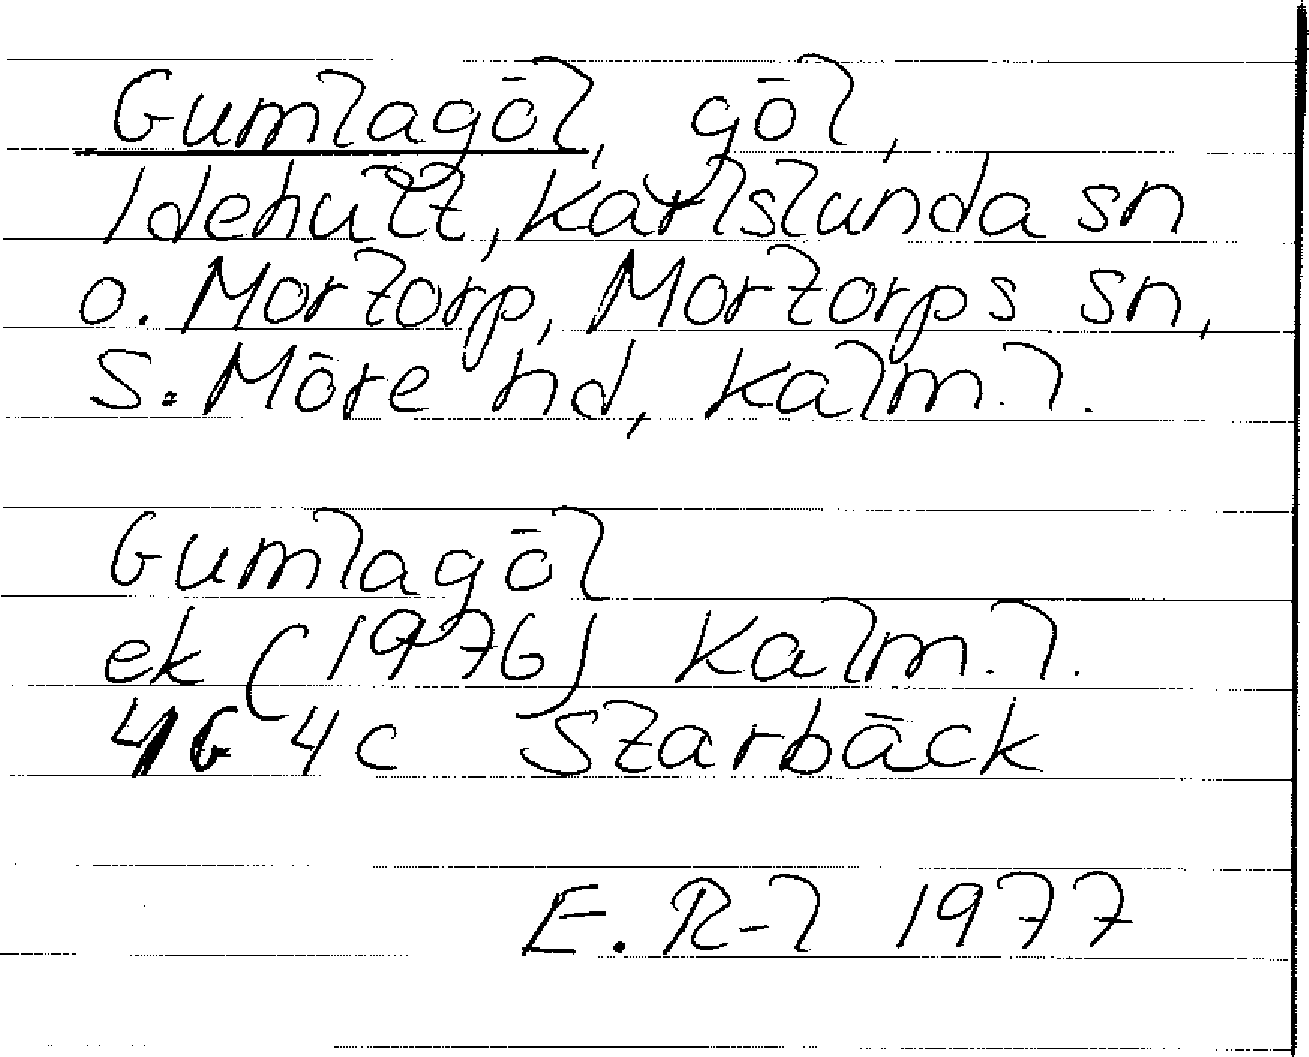 Gumlagöl, göl,
Idehult, Karlslunda sn
o. Mortorp, Mortorps sn,
S. Möre hd, Kalm. l.
Gumlagöl
ek (1976) Kalm. l.
4G 4c Starbäck
E. R-l 1977